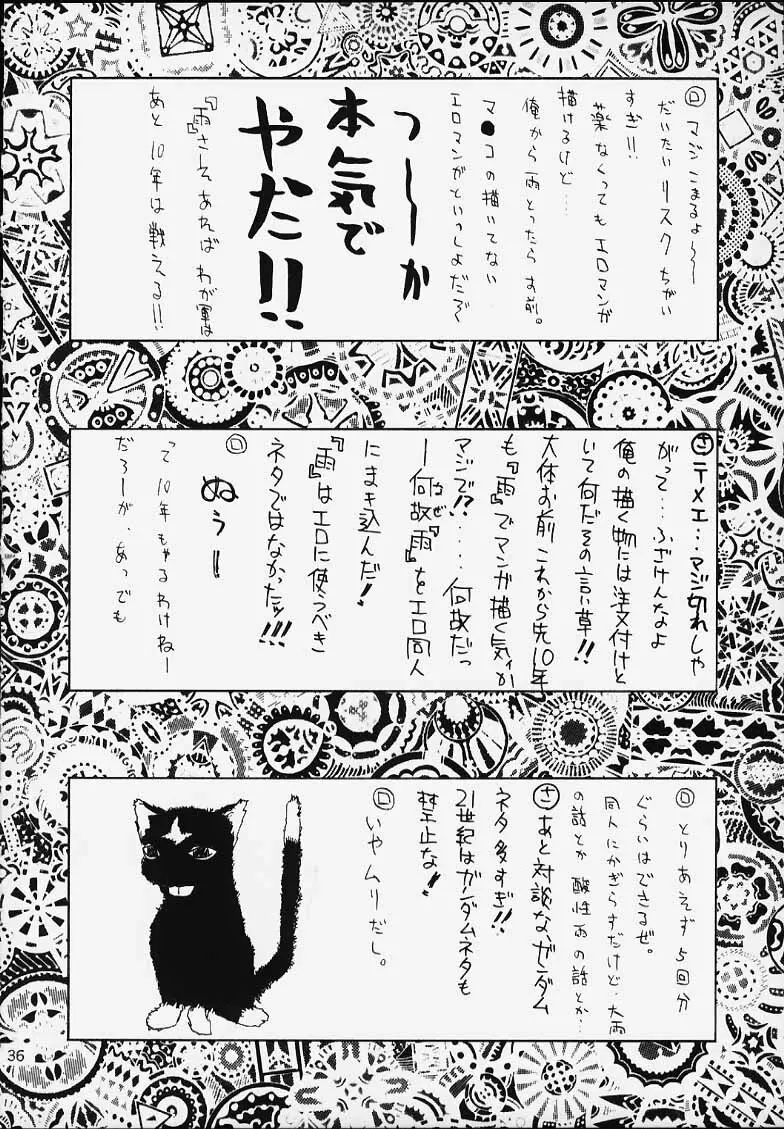 ロ マジこまるよ〜〜
だいたいリスクちがい
すぎ!!
薬なくってもエロマンガ
描けるけど…
俺から雨とったらお前。
マ●コの描いてない
エロマンガといっしょだぞ〜
つ〜〜か
本気で
やだ!!
『雨』さえあればわが軍は
あと10年は戦える!!
さ テメエ‥マジ切れしゃ
がって…ふざけんなよ
俺の描く物には注文付けと
いて何だその言い草!!
大体お前これから先10年
も『雨』でマンガ描く気か
マジで!?‥‥何故だっ
ー何故『雨』をエロ同人
なぜ
にまき込んだ!
『雨』はエロに使うべき
ネタではなかったッ!!!
ロ ぬぅー
って10年もやるわけねー
だろーが、あっでも
ロ とりあえず5回分
ぐらいはできるぜ。
同人にかぎらずだけど、大雨
の話とか酸性雨の話とか…
さ あと対談な、ガンダム
ネタ多すぎ!!
21世紀はガンダムネタも
禁止な!!
ロ いやムリだし。
36